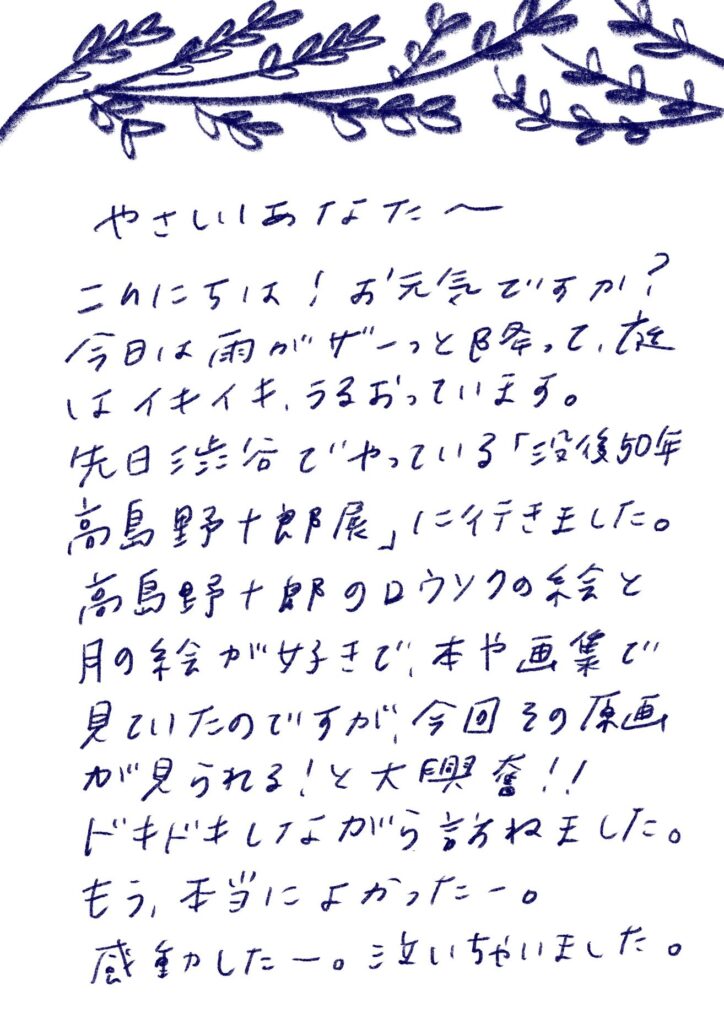 やさしいあなたへ
こんにちは！お元気ですか？
今日は雨がザーっと降って、庭
はイキイキ、うるおっています。
先日渋谷でやっている「没後50年
高島野十郎展」に行きました。
高島野十郎のロウソクの絵と
月の絵が好きで、本や画集で
見ていたのですが、今回その原画
が見られる！と大興奮！！
ドキドキしながら訪ねました。
もう、本当によかったー。
感動したー。泣いちゃいました。